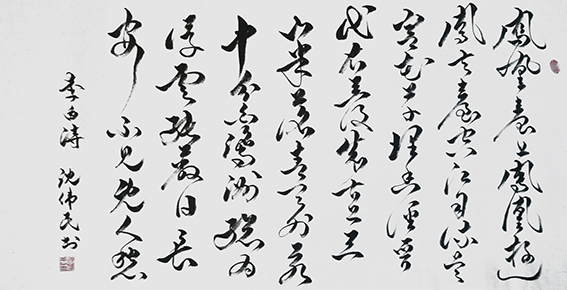 鳳凰臺上鳳凰遊
鳳去臺空江自流吳
宮花草埋幽徑晉
代衣冠成古丘三
山半落青天外二水
中分白鷺洲總為
浮雲能蔽日長
安不見使人愁
李白詩 沈偉民書